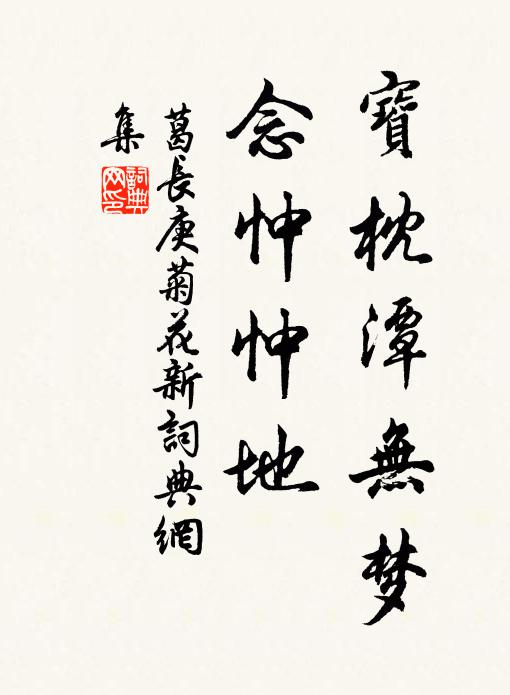 寶枕潭無梦
念忡忡地
葛長庚菊花新詞典網
集
詞典
网印